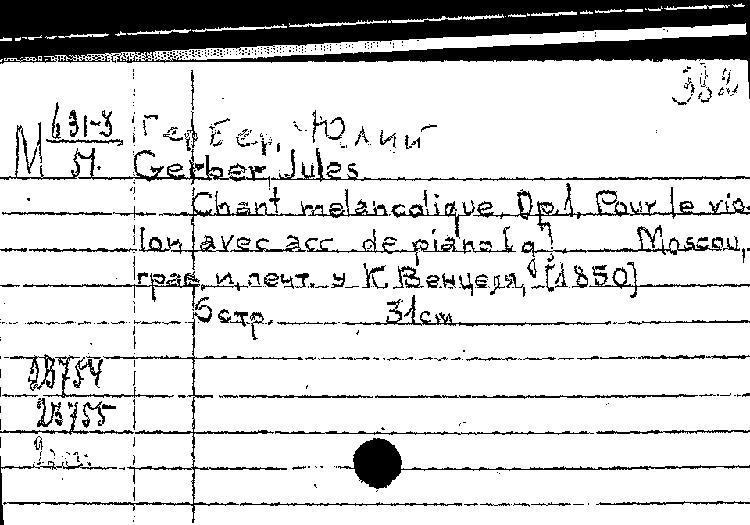 382
М 631-3/51
Гербер, Юлий
Gerber, Jules.
Chant melancolique. Op.1. Pour le vio-
lon avec acc. de piano [g]. Moscou,
грав. и печт. у К. Венцеля, [1850]
5 стр. 31 см
23754
23755